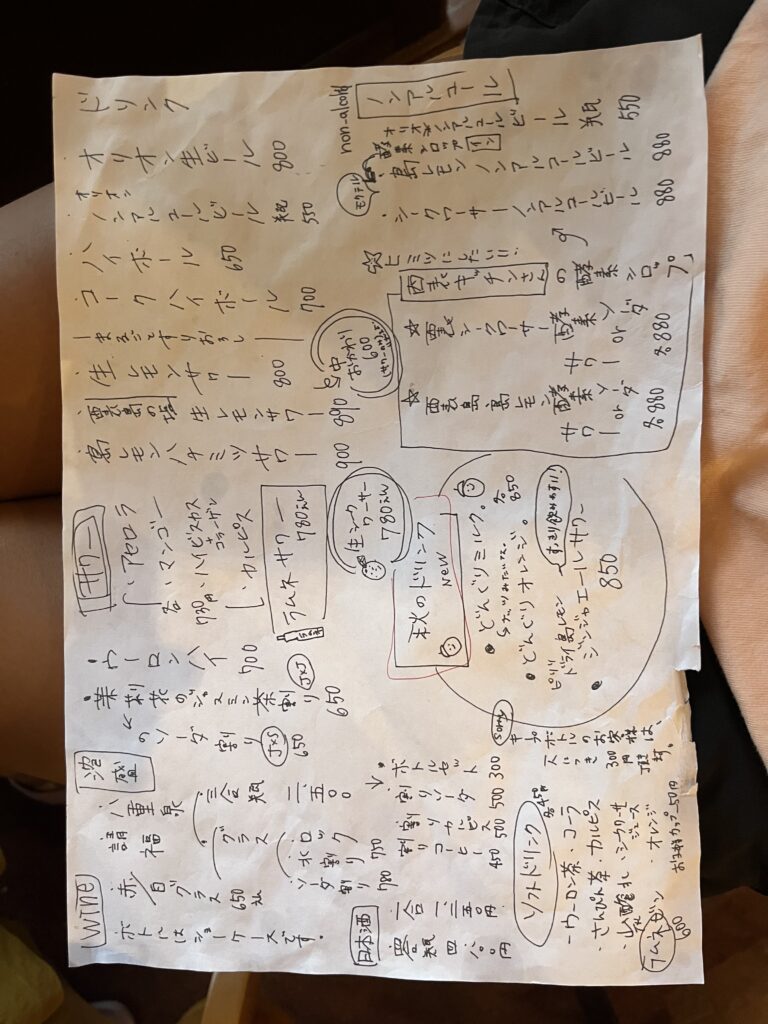 ドリンク
オリオン生ビール 800
オリオン
ノンアルコールビール 瓶 550
ハイボール 650
コークハイボール 700
まるごとすりおろし
生レモンサワー 800
西表島の塩 生レモンサワー 890
島レモンハチミツサワー 900
中
おかわり
600
サワー
・アセロラ
・マンゴー
各 730円
・ハイビスカス
コラーゲン
・カルピス
ラムネサワー
780えん
生シークワーサー
780えん
ウーロンハイ 700
茉莉花のジャスミン茶割り JXJ 650
〃のソーダ割り JXS 650
泡盛
八重泉
請福
三合瓶 二、五〇〇
グラス
・水ロック
水割り 750
ソーダ割り 780
ボトルセット 300
割りソーダ 500
割りカルピス 500
割りコーヒー 450
wine
赤/白グラス 650
ボトルはショーケースです。
日本酒
一合 一、三五〇円
non-alcohol
ノンアルコール
オリオンノンアルコールビール 瓶 550
酵素シロップ イン
モクテル
島レモンノンアルコールビール 880
シークワーサーノンアルコールビール 880
☆ヒミツにしたい!!
西表キッチンさんの酵素シロップ」
☆西表シークワーサー酵素ソーダ
サワー or
各880
☆西表島島レモン酵素ソーダ
サワー or
各880
秋のドリンク
NEW
・どんぐりミルク。
・どんぐりオレンジ。
各850
すっきり飲みやすい!
・ピリリ
ドライ島レモン
ジンジャエールサワー
850
キープボトルのお客様は、
1人につき 300円 頂戴。
ソフトドリンク 各450
・ウーロン茶・コーラ
・さんぴん茶・カルピス
・シークワーサージュース
・オレンジ
ラムネ 600
お子様カップ-50円